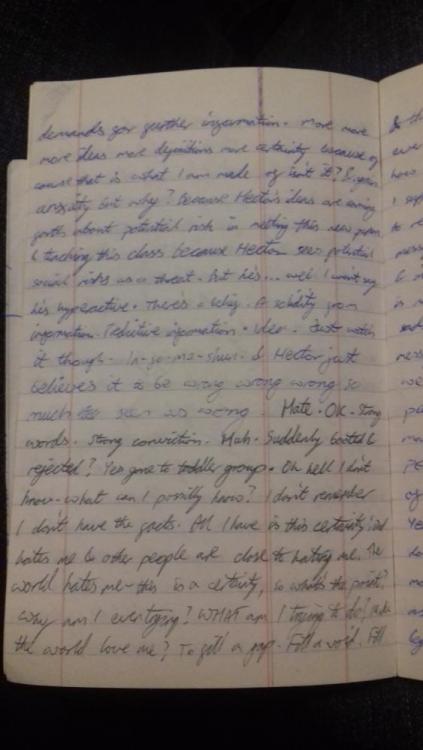 demands for further information. More more
more ideas more definitions more certainty because of
course that is what I am made of isn't it?
anxiety but why? Because Hector's ideas are coming
forth about potential risk in meeting this new person
& teaching this class because Hector sees potential
social risks as a threat. But he's... well I won't say
he's hyperactive. There's a whizz. A solidity from
information. Definitive information. Idea. Just watch
it though. In-fo-ma-shun. & Hector just
believes it to be wrong wrong wrong so
much seen as wrong. Hate. OK. Strong
words. Strong conviction. Mah. Suddenly booted &
rejected? Yes gone to toddler group. Oh hell I don't
know - what can I possibly know? I don't remember
I don't have the facts. All I have is this certainty:
hates me & other people are close to hating me. The
world hates me - this is a certainty, so what's the point?
Why am I even trying? WHAT am I trying to do?
the world love me? To fill a gap. Fill a void. Fill